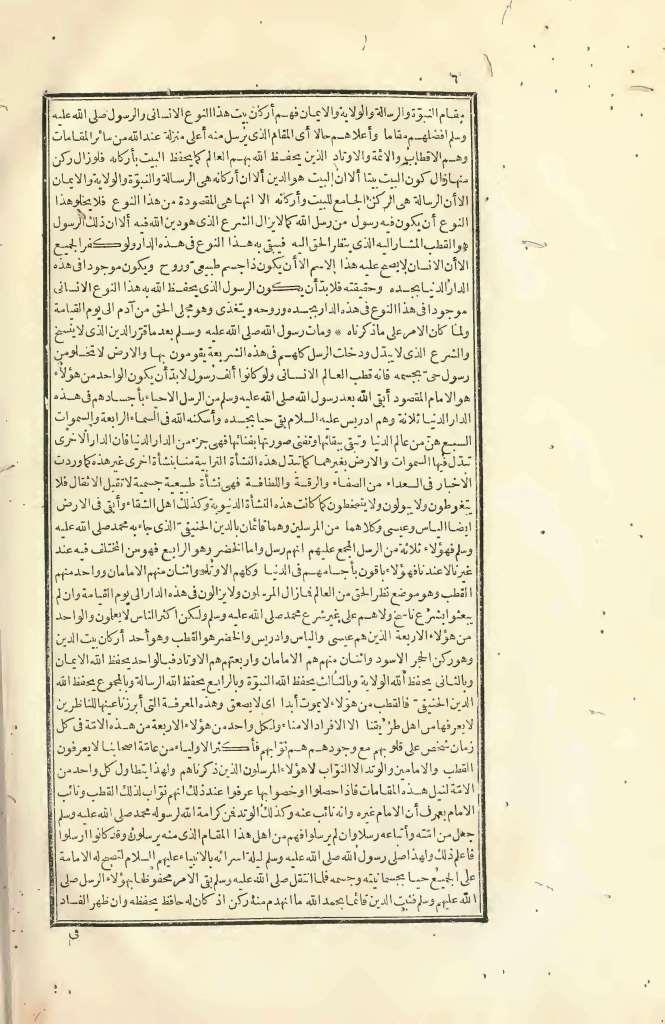 ٦
بمقام النبوّة والرسالة والولاية والايمان فهم أركان بيت هذا النوع الانسانى والرسول صلى الله عليه
وسلم افضلهم مقاما وأعلاهم حالا أى المقام الذى يرسل منه أعلى منزلة عند الله من سائر المقامات
وهم الاقطاب والائمة والاوتاد الذين يحفظ الله بهم العالم كما يحفظ البيت بأركانه فلو زال ركن
منها زال كون البيت بيتا ألا ان البيت هو الدين ألا ان أركانه هى الرسالة والنبوّة والولاية والايمان
الا أن الرسالة هى الركن الجامع للبيت وأركانه الا انها هى المقصودة من هذا النوع فلا يخلو هذا
النوع أن يكون فيه رسول من رسل الله كما لا يزال الشرع الذى هو دين الله فيه ألا ان ذلك الرسول
هو القطب المشار اليه الذى ينظر الحق اليه فيبقى به هذا النوع فى هذه الدار ولو كفر الجميع
الا أن الانسان لا يصح عليه هذا الاسم الا أن يكون ذا جسم طبيعى وروح ويكون موجودا فى هذه
الدار الدنيا بجسده وحقيقته فلا بدّ أن يكون الرسول الذى يحفظ الله به هذا النوع الانسانى
موجودا فى هذا النوع فى هذه الدار بجسده وروحه ويتغذى وهو مجلى الحق من آدم الى يوم القيامة
ولما كان الامر على ماذكرناه * ومات رسول الله صلى الله عليه وسلم بعد ما قرّر الدين الذى لا ينسخ
والشرع الذى لا يبدّل ودخلت الرسل كلهم فى هذه الشريعة يقومون بها والارض لا تخلو من
رسول حىّ بجسمه فانه قطب العالم الانسانى ولو كانوا ألف رسول لا بدّ أن يكون الواحد من هؤلاء
هو الامام المقصود أبقى الله بعد رسول الله صلى الله عليه وسلم من الرسل الاحياء بأجسادهم فى هذه
الدار الدنيا ثلاثة وهم ادريس عليه السلام بقى حيا بجسده وأسكنه الله فى السماء الرابعة والسموات
السبع هنّ من عالم الدنيا وتبقى ببقائها وتفنى صورتها بفنائها فهى جزء من الدار الدنيا فان الدار الاخرى
تبدّل فيها السموات والارض بغيرهما كما تبدّل هذه النشأة الترابية منا بنشأة اخرى غير هذه كما وردت
الاخبار فى السعداء من الصفاء والرقة واللطافة فهى نشأة طبيعية جسمية لا تقبل الاثقال فلا
يتغوطون ولا يبولون ولا يتمخطون كما كانت هذه النشأة الدنيوية وكذلك اهل الشقاء وأبقى فى الارض
ايضا الياس وعيسى وكلاهما من المرسلين وهما قائمان بالدين الحنيفىّ الذى جاء به محمد صلى الله عليه
وسلم فهؤلاء ثلاثة من الرسل المجمع عليهم انهم رسل واما الخضر وهو الرابع فهو من المختلف فيه عند
غيرنا لا عندنا فهؤلاء باقون بأجسامهم فى الدنيا وكلهم الاوتاد واثنان منهم الامامان وواحد منهم
القطب وهو موضع نظر الحق من العالم فما زال المرسلون ولا يزالون فى هذه الدار الى يوم القيامة وان لم
يبعثوا بشرع ناسخ ولا هم على غير شرع محمد صلى الله عليه وسلم ولكن اكثر الناس لا يعلمون والواحد
من هؤلاء الاربعة الذين هم عيسى والياس وادريس والخضر هو القطب وهو أحد أركان بيت الدين
وهو ركن الحجر الاسود واثنان منهم هم الامامان واربعتهم هم الاوتاد فبالواحد يحفظ الله الايمان
وبالثانى يحفظ الله الولاية وبالثالث يحفظ الله النبوّة وبالرابع يحفظ الله الرسالة وبالمجموع يحفظ الله
الدين الحنيفىّ فالقطب من هؤلاء لا يموت أبدا اى لا يصعق وهذه المعرفة التى أبرزنا عينها للناظرين
لا يعرفها من اهل طريقتنا الا الافراد الامناء ولكل واحد من هؤلاء الاربعة من هذه الامّة فى كل
زمان شخص على قلوبهم مع وجودهم هم نوّابهم فأكثر الاولياء من عامّة اصحابنا لا يعرفون
القطب والامامين والوتد الا النوّاب لا هؤلاء المرسلون الذين ذكرناهم ولهذا يتطاول كل واحد من
الامّة لنيل هذه المقامات فاذا حصلوا او خصوا بها عرفوا عند ذلك انهم نوّاب لذلك القطب ونائب
الامام يعرف أن الامام غيره وانه نائب عنه وكذلك الوتد فمن كرامة الله لرسوله محمد صلى الله عليه وسلم
جعل من امّته وأتباعه رسلا وان لم يرسلوا فهم من اهل هذا المقام الذى منه يرسلون وقد كانوا ارسلوا
فاعلم ذلك ولهذا صلى رسول الله صلى الله عليه وسلم ليلة اسرائه بالانبياء عليهم السلام لتصح له الامامة
على الجميع حيا بجسمانيته وجسمه فلما انتقل صلى الله عليه وسلم بقى الامر محفوظا بهؤلاء الرسل صلى
الله عليهم وسلم فثبت الدين قائما بحمد الله ما انهدم منه ركن اذ كان له حافظ يحفظه وان ظهر الفساد
فى